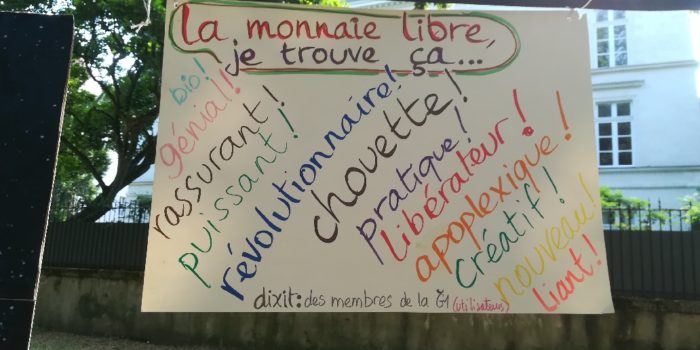 La monnaie libre,
je trouve ça...
bio!
génial!
rassurant!
puissant!
révolutionnaire!
chouette!
pratique!
libérateur!
apoplexique!
créatif!
nouveau!
liant!
dixit: des membres de la Ğ1 (utilisateurs)